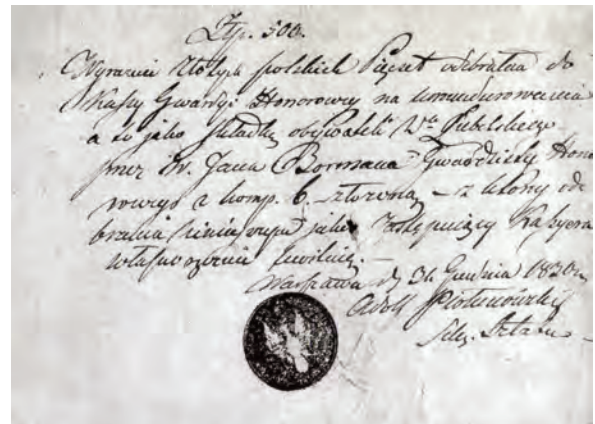 Złp. 500.
Wyraźnie Złotych polskich Pięćset odebrałem do
Kassy Gwardyi Honorowey na umundurowanie
a to jako składkę obywateli Wa Lubelskiego
przez Ob. Jana Bormana Gwardzistę Hono
rowego z komp. 6. złożoną – z którey ode
brania ninieyszym jako zastępujący Kassyera
własnoręcznie kwituię. –
Warszawa d 31 Grudnia 1830 r.
Adolf
Sztabu –